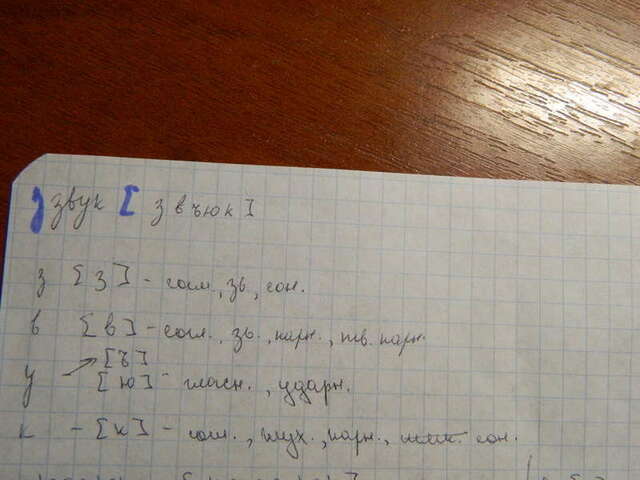 звук [звъюк]
з [з] - согл., зв., сон.
в [в] - согл., зв., парн., тв. парн.
[ъ]
у [ю] - гласн., ударн.
к - [к] - согл., глух., парн., сон.